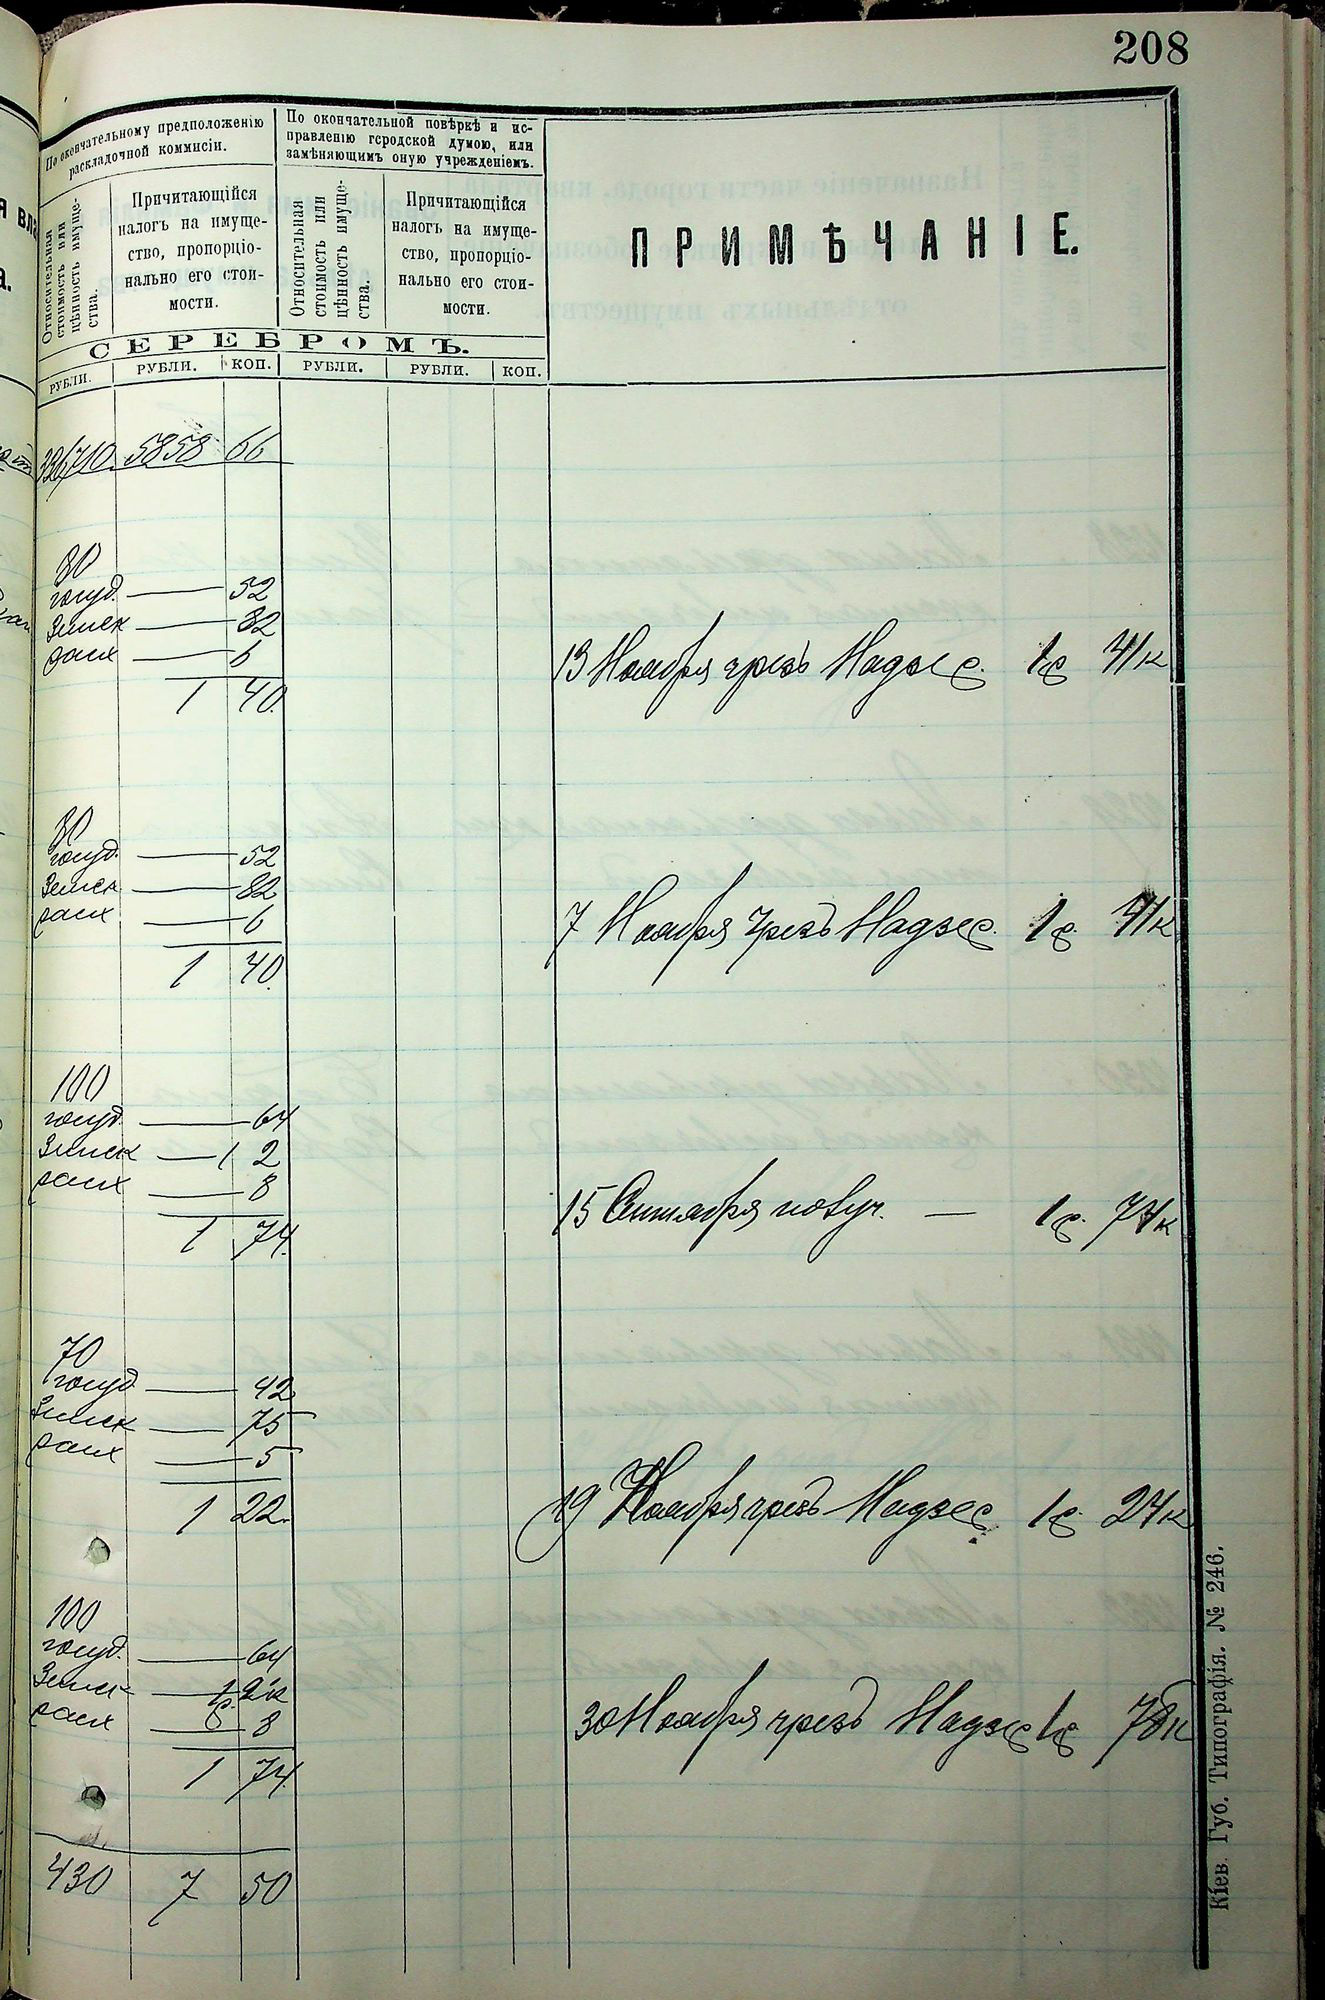 208
По окончательному предположенію
раскладочной коммисіи.
По окончательной повѣркѣ и ис-
правленію городской думою, или
замѣняющимъ оную учрежденіемъ.
Относительная
стоимость или
цѣнность имуще-
ства.
Причитающійся
налогъ на имуще-
ство, пропорціо-
нально его стои-
мости.
Относительная
стоимость или
цѣнность имуще-
ства.
Причитающійся
налогъ на имуще-
ство, пропорціо-
нально его стои-
мости.
ПРИМѢЧАНІЕ.
СЕРЕБРОМЪ.
РУБЛИ. РУБЛИ. КОП. РУБЛИ. РУБЛИ. КОП.
326710 5858 66
80
госуд. — 52
Земск — 82
расх — 6
13 Ноября чрезъ Надзс 1р 41к
1 40.
80
госуд. — 52
Земск — 82
расх — 6
7 Ноября чрезъ Надзс 1р. 41к
1 40.
100
госуд. — 64
Земск — 1 2
расх — 8
15 Сентября — 1р. 74к
1 74.
70
госуд — 42
Земск — 75
расх — 5
1 22.
19 Ноября чрезъ Надзс 1р. 24к
100
госуд. — 64
Земск — 1р. 2к
расх — 8
30 Ноября чрезъ Надзс 1р
1 74.
430 7 50
Кіев. Губ. Типографія. № 246.